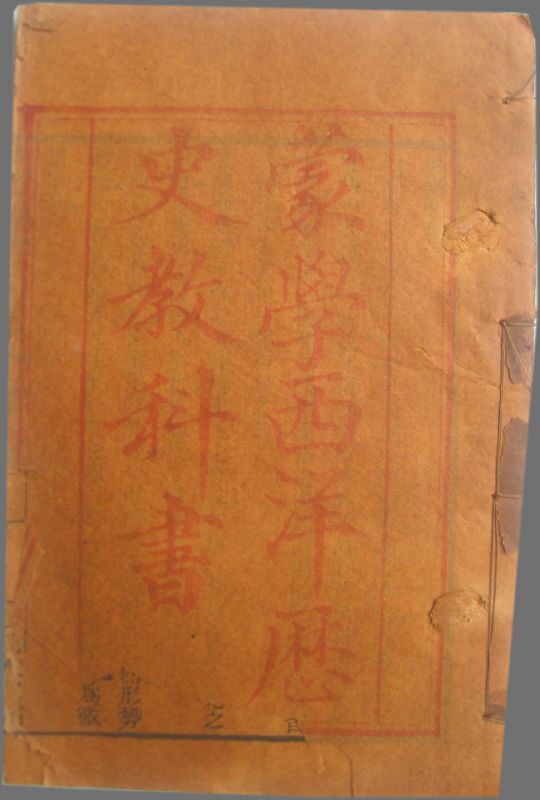 蒙學西洋歷
史教科書
之
形勢